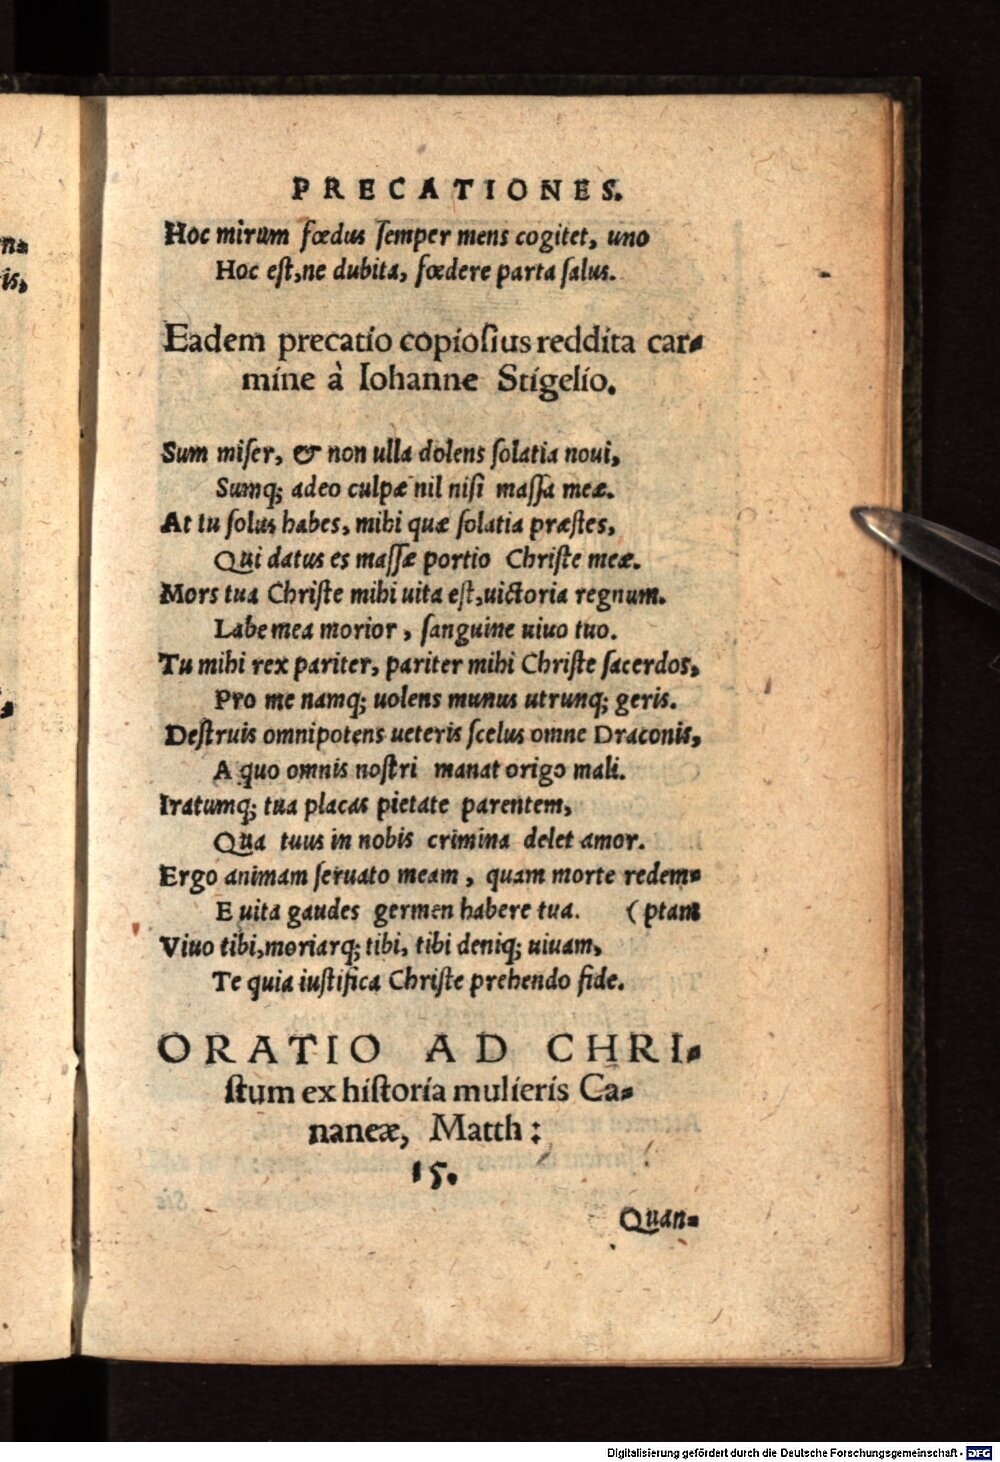 na
is,
PRECATIONES.
Hoc mirum fœdus ſemper mens cogitet, uno
Hoc eſt, ne dubita, fœdere parta ſalus.
Eadem precatio copioſius reddita car-
mine à Iohanne Stigelio.
Sum miſer, & non ulla dolens ſolatia noui,
Sumq; adeo culpæ nil niſi maſſa meæ.
At tu ſolus habes, mihi quæ ſolatia præſtes,
Qui datus es maſſæ portio Chriſte meæ.
Mors tua Chriſte mihi uita eſt, uictoria regnum.
Labe mea morior, ſanguine uiuo tuo.
Tu mihi rex pariter, pariter mihi Chriſte ſacerdos,
Pro me namq; uolens munus utrunq; geris.
Deſtruis omnipotens ueteris ſcelus omne Draconis,
A quo omnis noſtri manat origo mali.
Iratumq; tua placas pietate parentem,
Qua tuus in nobis crimina delet amor.
Ergo animam ſeruato meam, quam morte redem-
E uita gaudes germen habere tua. (ptam
Viuo tibi, moriarq; tibi, tibi deniq; uiuam,
Te quia iuſtifica Chriſte prehendo fide.
ORATIO AD CHRI-
ſtum ex hiſtoria mulieris Ca-
naneæ, Matth:
15.
Quan-
Digitalisierung gefördert durch die Deutsche Forschungsgemeinschaft - DFG